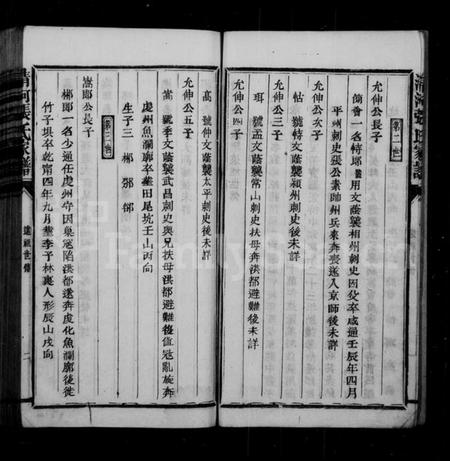 清河張氏家譜
允伸公長子
第二卷
簡會一名特郎用文蔭襲相州刺史因父卒咸通壬辰年四月
平州刺史張公素帥州兵來奔喪遂入京師後未詳
允伸公次子
怙 號特文蔭襲潁州刺史後未詳
允伸公三子
珥 號孟文蔭襲常山刺史扶母奔洪都避難後未詳
允伸公四子
高 號仲文蔭襲太平刺史後未詳
允伸公五子
嵩 號季文蔭襲武昌刺史與兄扶母洪都避難後值寇亂旋奔
虔州魚瀾廓卒葬田尾坑壬山丙向
生子三 郴
第三卷
嵩郎公長子
郴郎一名少通任虔州守因巢寇陷洪都遂奔虔化魚瀾廓後徙
竹子垻卒乾甯四年九月葬李子林裏人形辰山戌向
清河張氏家譜
遠祖世傳
二